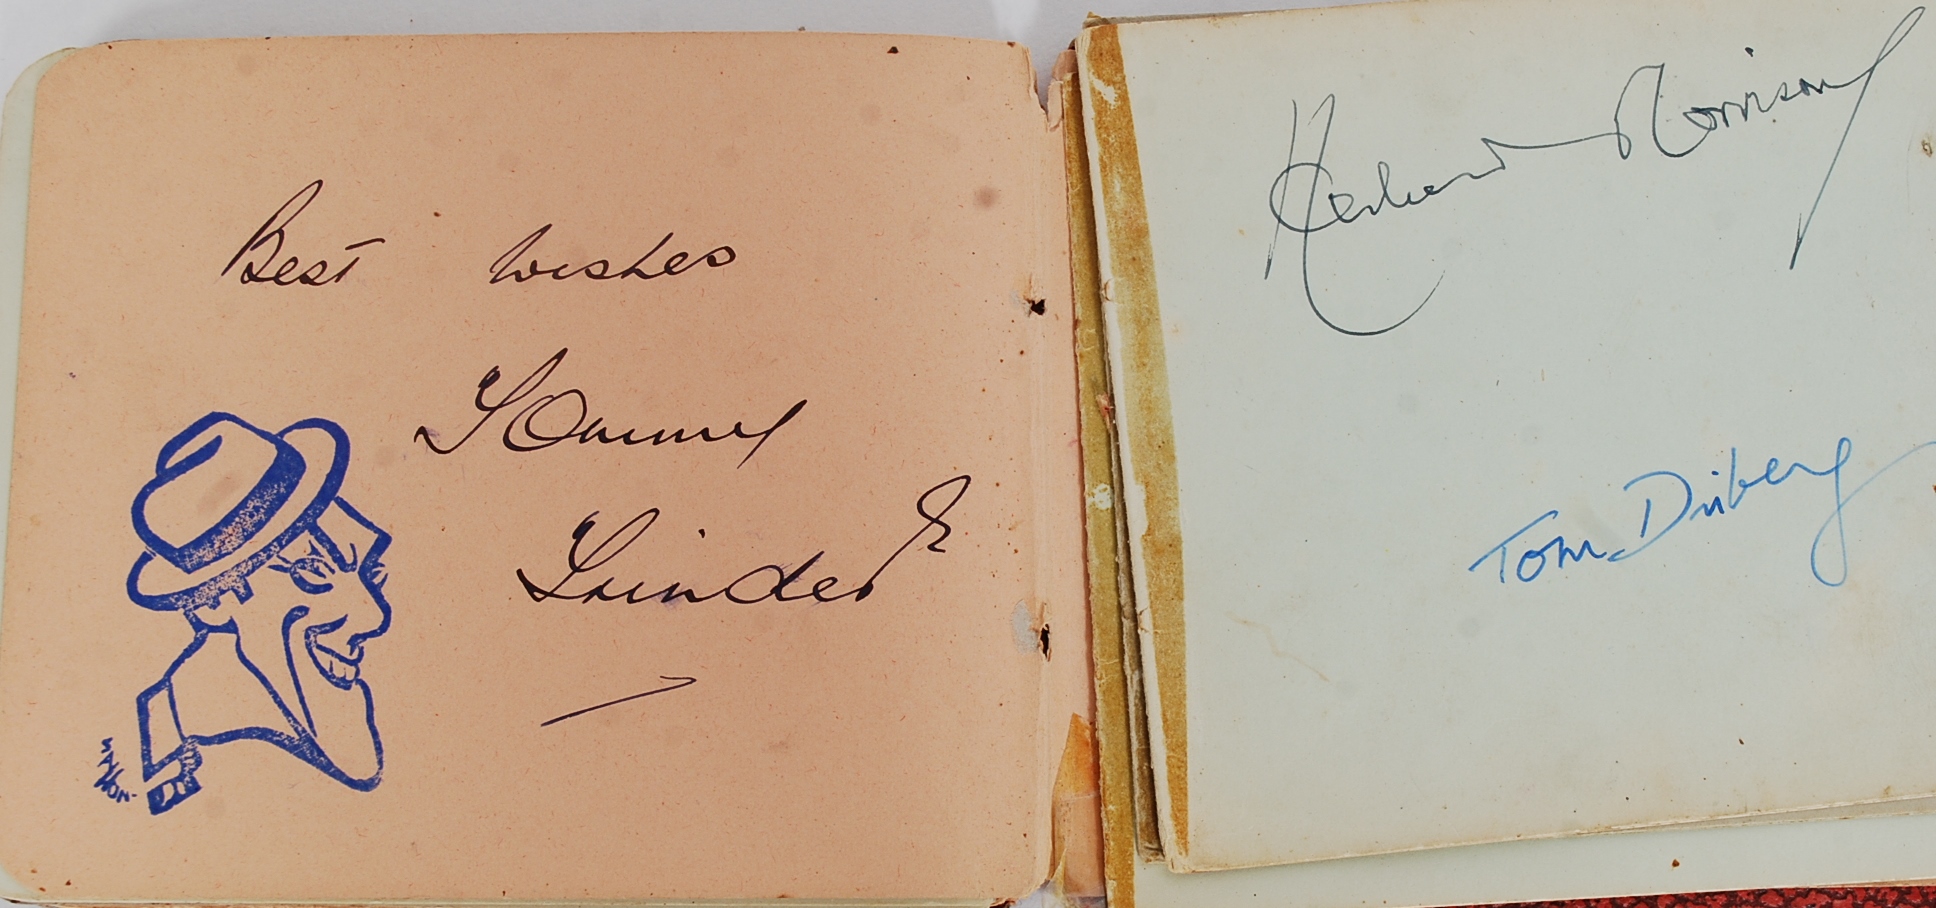 Best wishes
Tommy
Trinder
Herbert Morrison
Tom Driberg